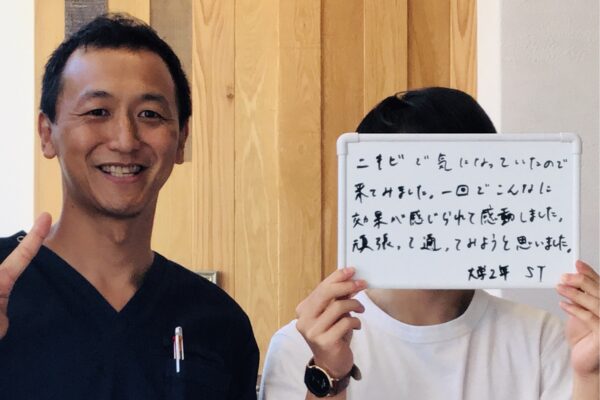 ニキビで気になっていたので
来てみました。一回でこんなに
効果が感じられて感動しました。
頑張って通ってみようと思いました。
大学2年 ST